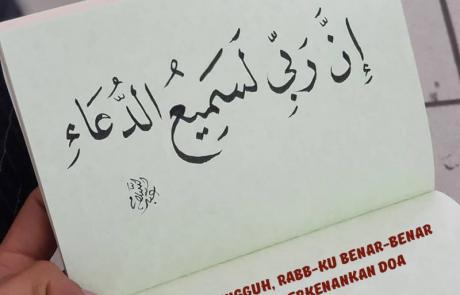 إِنَّ رَبِّي لَسَمِيعُ الدُّعَاءِ
NGGUH, RABB-KU BENAR-BENAR
ERKENANKAN DOA